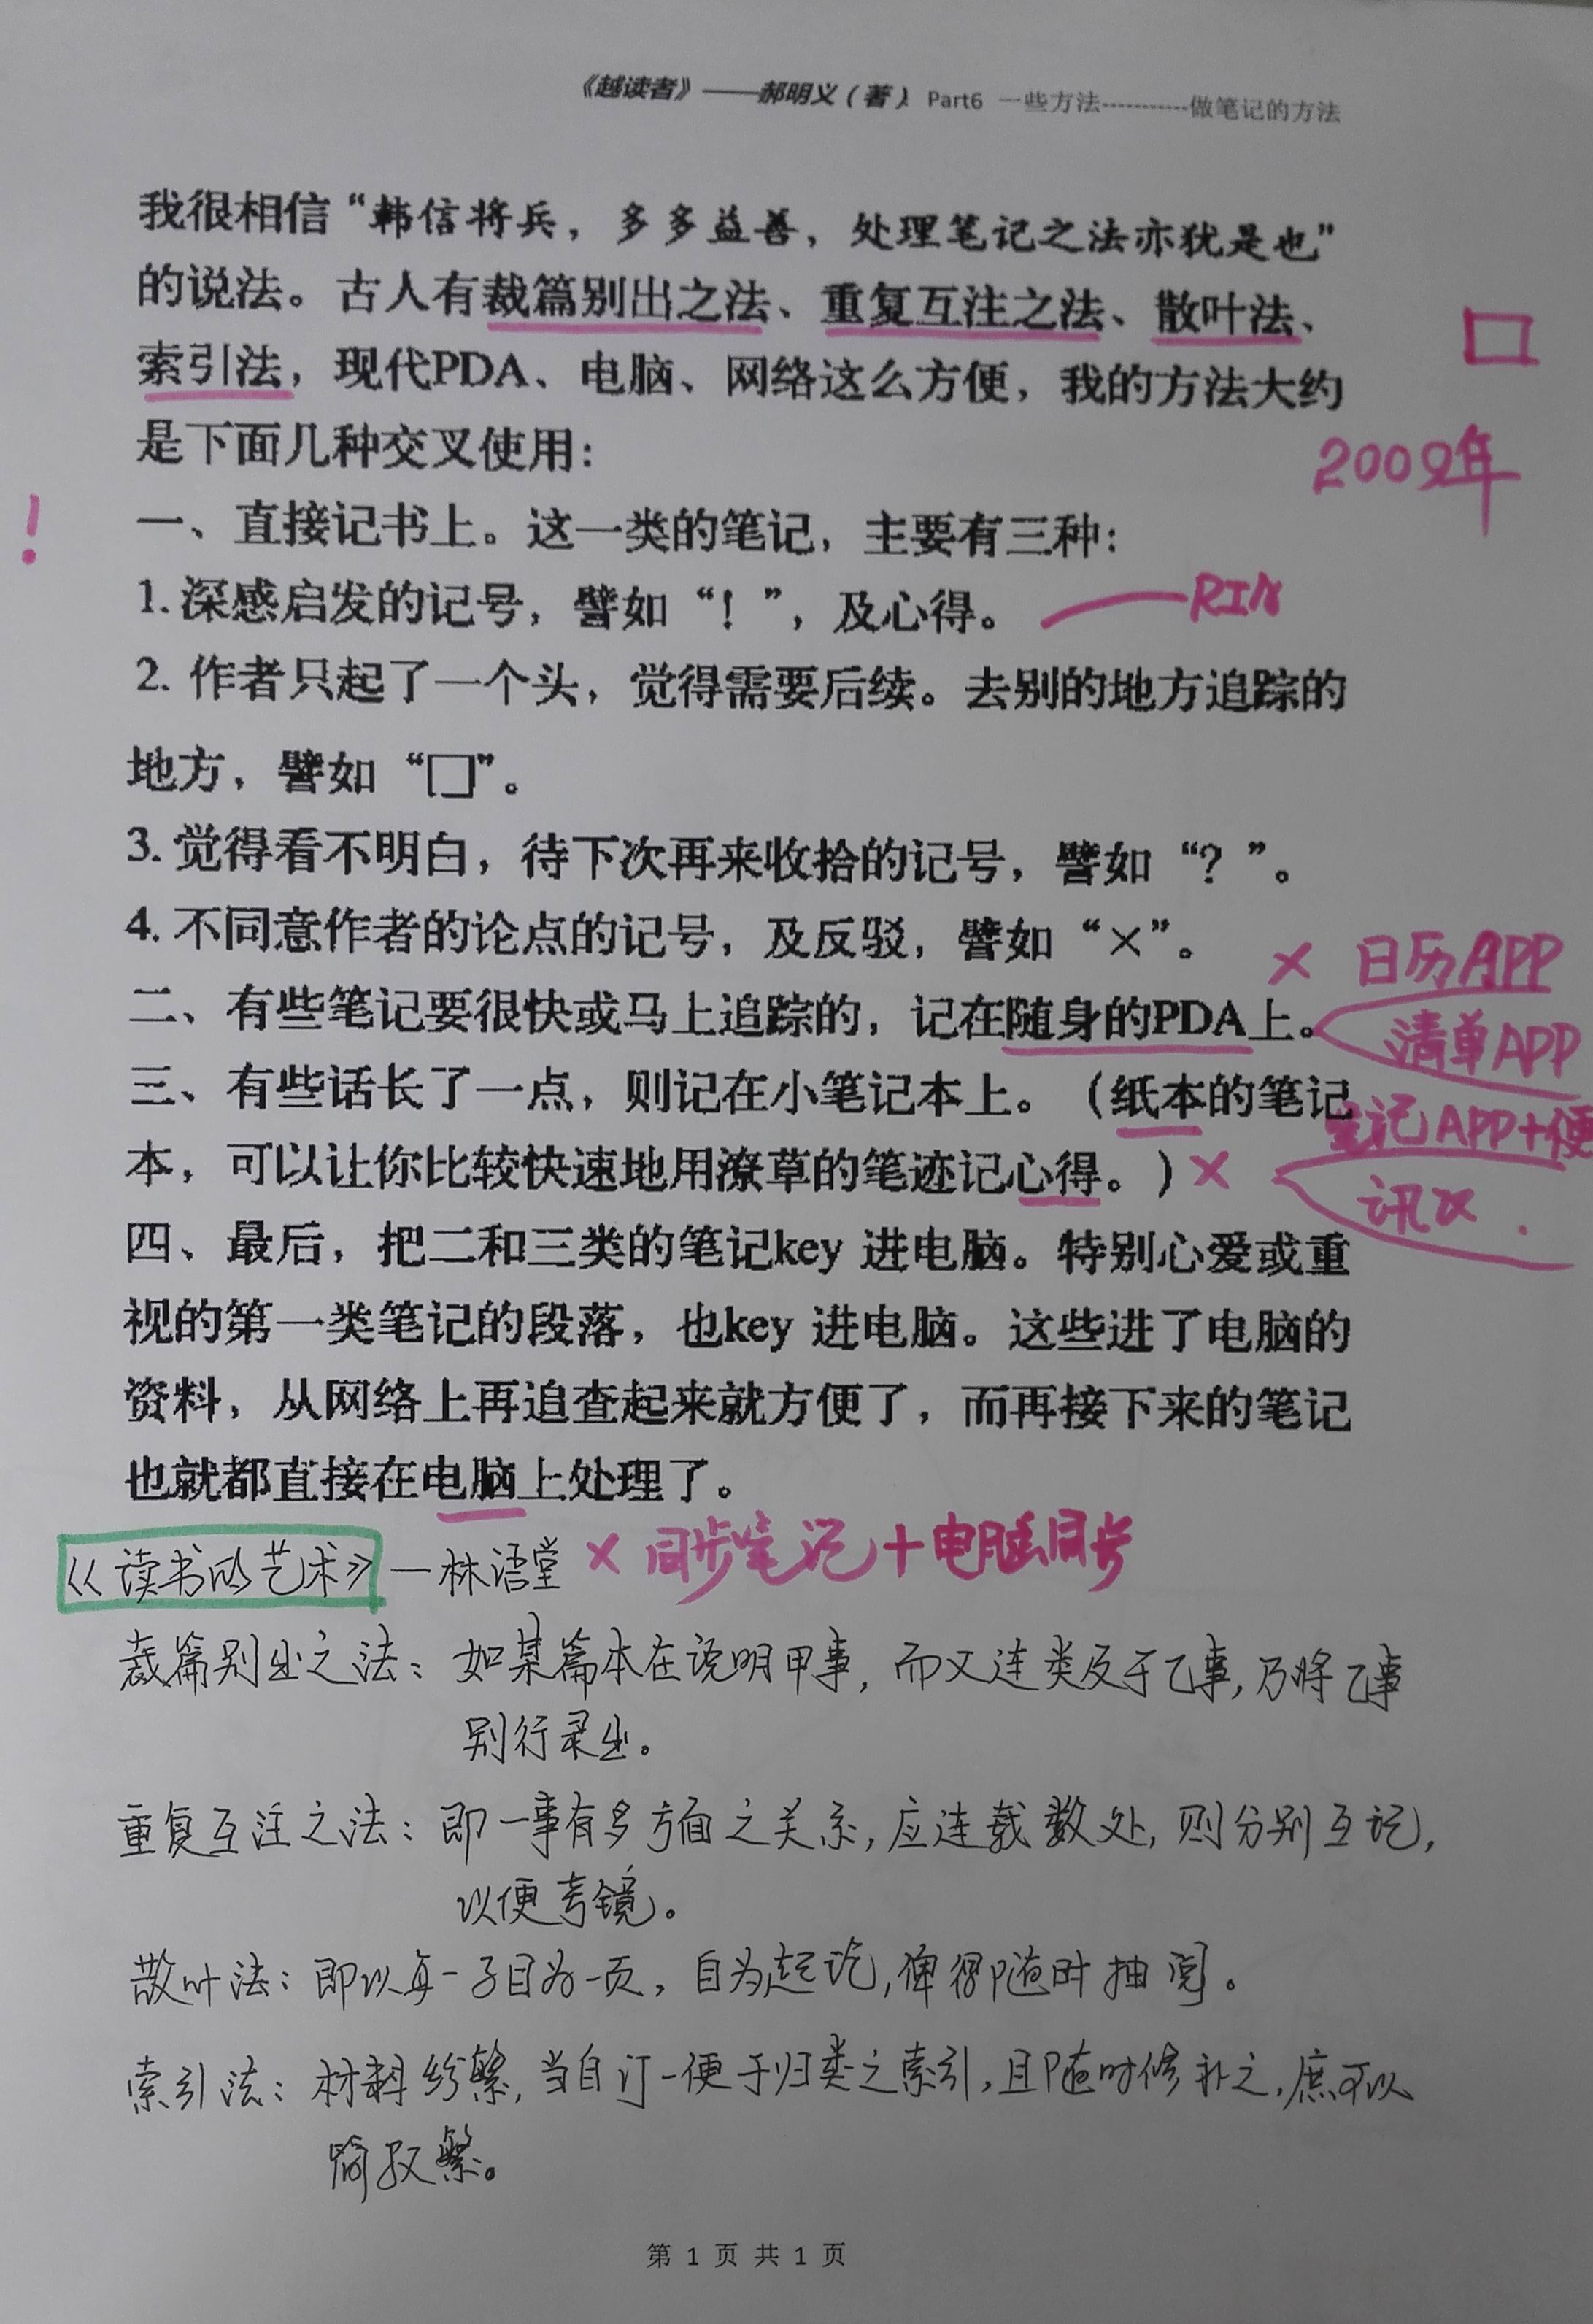 《越读者》——郝明义（著） Part6 一些方法-----------做笔记的方法
我很相信“韩信将兵，多多益善，处理笔记之法亦犹是也”
的说法。古人有裁篇别出之法、重复互注之法、散叶法、
索引法，现代PDA、电脑、网络这么方便，我的方法大约
是下面几种交叉使用：
2009年
!
一、直接记书上。这一类的笔记，主要有三种：
1.深感启发的记号，譬如“！”，及心得。
2. 作者只起了一个头，觉得需要后续。去别的地方追踪的
地方，譬如“□”。
3.觉得看不明白，待下次再来收拾的记号，譬如“？”。
4.不同意作者的论点的记号，及反驳，譬如“×”。
× 日历APP
二、有些笔记要很快或马上追踪的，记在随身的PDA上。
清单APP
三、有些话长了一点，则记在小笔记本上。（纸本的笔记
笔记APP+便
本，可以让你比较快速地用潦草的笔迹记心得。）×
四、最后，把二和三类的笔记key 进电脑。特别心爱或重
视的第一类笔记的段落，也key 进电脑。这些进了电脑的
资料，从网络上再追查起来就方便了，而再接下来的笔记
也就都直接在电脑上处理了。
《读书的艺术》—林语堂 × 同步笔记+电脑同步
裁篇别出之法：如某篇本在说明甲事，而又连类及于乙事，乃将乙事
别行录出。
重复互注之法：即一事有多方面之关系，应连载数处，则分别互记，
以便考镜。
散叶法：即以每一子目为一页，自为起讫，俾得随时抽阅。
索引法：材料纷繁，当自订一便于归类之索引，且随时修补之，庶可以
简驭繁。
第 1 页 共 1 页